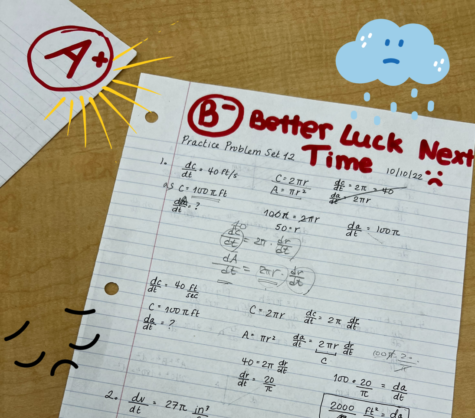 A+
B- Better Luck Next
Time
Practice Problem Set 12
10/10/22
1. dc/dt = 40 ft/s
C = 2πr
dc/dt = 2π = 40
as C = 100π ft
A = πr²
da/dt = 2πr
dA/dt = ?
100π = 2πr
50 = r
da/dt = 100π
40
dc/dt = 2π · dr/dt
dA/dt = 2πr · dr/dt
dc/dt = 40 ft/sec
C = 100π ft
C = 2πr
dc/dt = 2π dr/dt
da/dt = ?
A = πr²
da/dt = 2πr dr/dt
C
40 = 2π dr/dt
dr/dt = 20/π
100π · 20/π = da/dt
2. dV/dt = 27π in³
2000 ft² = da